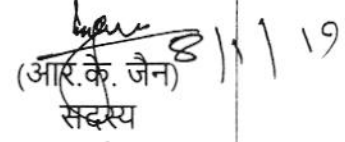 8/1/19
(आर.के. जैन)
सदस्य